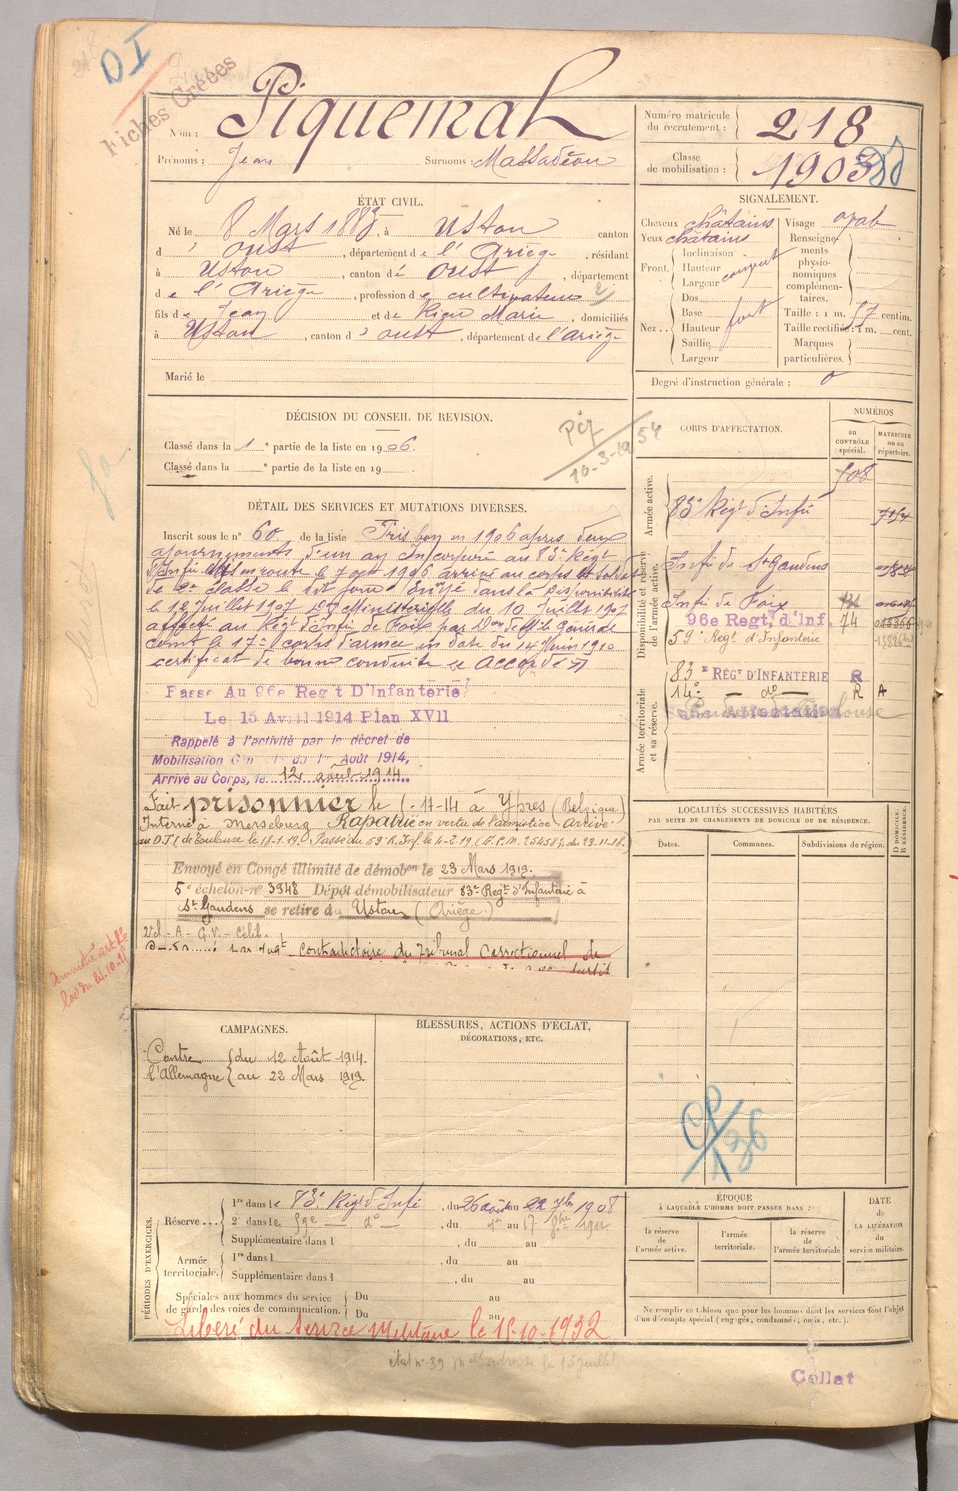 218
DI
Fiches Créées
Nom : Piquemal
Prénoms : Jean Surnoms : Massadéou
Numéro matricule du recrutement : 218
Classe de mobilisation : 1903
ÉTAT CIVIL.
Né le 8 Mars 1883, à Ustou canton
d' Oust, département de l'Ariège, résidant
à Ustou, canton d' Oust, département
de l'Ariège, profession de cultivateur 2
fils de Jean et de Rieu Marie, domiciliés
à Ustou, canton d' Oust, département de l'Ariège
Marié le
SIGNALEMENT.
Cheveux châtains
Yeux châtains
Front. Inclinaison
Hauteur
Largeur
Nez. Dos
Base
Hauteur fort
Saillie
Largeur
Visage oval
Renseignements physionomiques complémentaires.
Taille : 1 m. 57 centim.
Taille rectifiée : 1 m. cent.
Marques particulières.
Degré d'instruction générale : 0
DÉCISION DU CONSEIL DE REVISION.
Classé dans la 1e partie de la liste en 1906.
Classé dans la e partie de la liste en 19 .
10-3-1954
DÉTAIL DES SERVICES ET MUTATIONS DIVERSES.
Inscrit sous le n° 60 de la liste Pris bon en 1906 après deux
ajournements d'un an Incorporé au 83e Régt
d'Infie en route le 7 oct 1906 arrivé au corps et soldat
de 2e classe le dit jour. Envoyé dans la Disponibilité
le 12 Juillet 1907 Don Ministérielle du 10 Juillet 1907
affecté au Régt d'Infie de Foix par Don de Mr le Général
Comt le 17e Corps d'armée en date du 14 Juin 1910
certificat de bonne conduite "Accordé"
Passé Au 96e Reg't D'Infanterie
Le 15 Avril 1914 Plan XVII
Rappelé à l'activité par le décret de
Mobilisation Générale du 1er Août 1914,
Arrivé au Corps, le 12 août 1914
Fait prisonnier le -11-14 à Ypres (Belgique)
Interné à Merseburg Rapatrié en vertu de l'armistice Arrivé
au D.T.I de Toulouse le 18-1-19. Passé au 59 R. Inf. le 4-2-19 du 23-11-18.
Envoyé en Congé illimité de démobon le 23 Mars 1919.
5e échelon-n° 3948 Dépôt démobilisateur 83e Régt d'Infanterie à
St Gaudens se retire à Ustou (Ariège.)
A - G.V. - Célib.
par Jugt contradictoire du Tribunal Correctionnel de
sursis
loi du 24.10.
CORPS D'AFFECTATION.
NUMÉROS
DU CONTRÔLE spécial.
MATRICULE OU AU répertoire.
Armée active.
708
83e Régt d'Infie
Disponibilité et réserve de l'armée active.
Infie de St Gaudens
Infie de Foix
96e Regt, d'Inf. 74
59e Regt d'Infanterie
Armée territoriale et sa réserve.
83e RÉGt D'INFANTERIE R
14e — do — R A
Sans Affectation
LOCALITÉS SUCCESSIVES HABITÉES
PAR SUITE DE CHANGEMENTS DE DOMICILE OU DE RÉSIDENCE.
D DOMICILE. R RÉSIDENCE.
Dates.
Communes.
Subdivisions de région.
CAMPAGNES.
Contre l'Allemagne
du 12 Août 1914.
au 22 Mars 1919.
BLESSURES, ACTIONS D'ÉCLAT,
DÉCORATIONS, ETC.
PÉRIODES D'EXERCICES.
Réserve... 1re dans le 83e Régt d'Infie, du 26 août au 1908
2e dans le 59e — do —, du 1er au 17 1912
Supplémentaire dans l , du au
Armée territoriale. 1re dans l , du au
Supplémentaire dans l , du au
Spéciales aux hommes du service de garde des voies de communication. Du au
Du au
Libéré du Service Militaire le 15-10-1932
ÉPOQUE
À LAQUELLE L'HOMME DOIT PASSER DANS :
la réserve de l'armée active.
l'armée territoriale.
la réserve de l'armée territoriale
DATE DE LA LIBÉRATION du service militaire.
Ne remplir ce tableau que pour les hommes dont les services font l'objet
d'un décompte spécial (engagés, condamnés, omis, etc.).
Collat